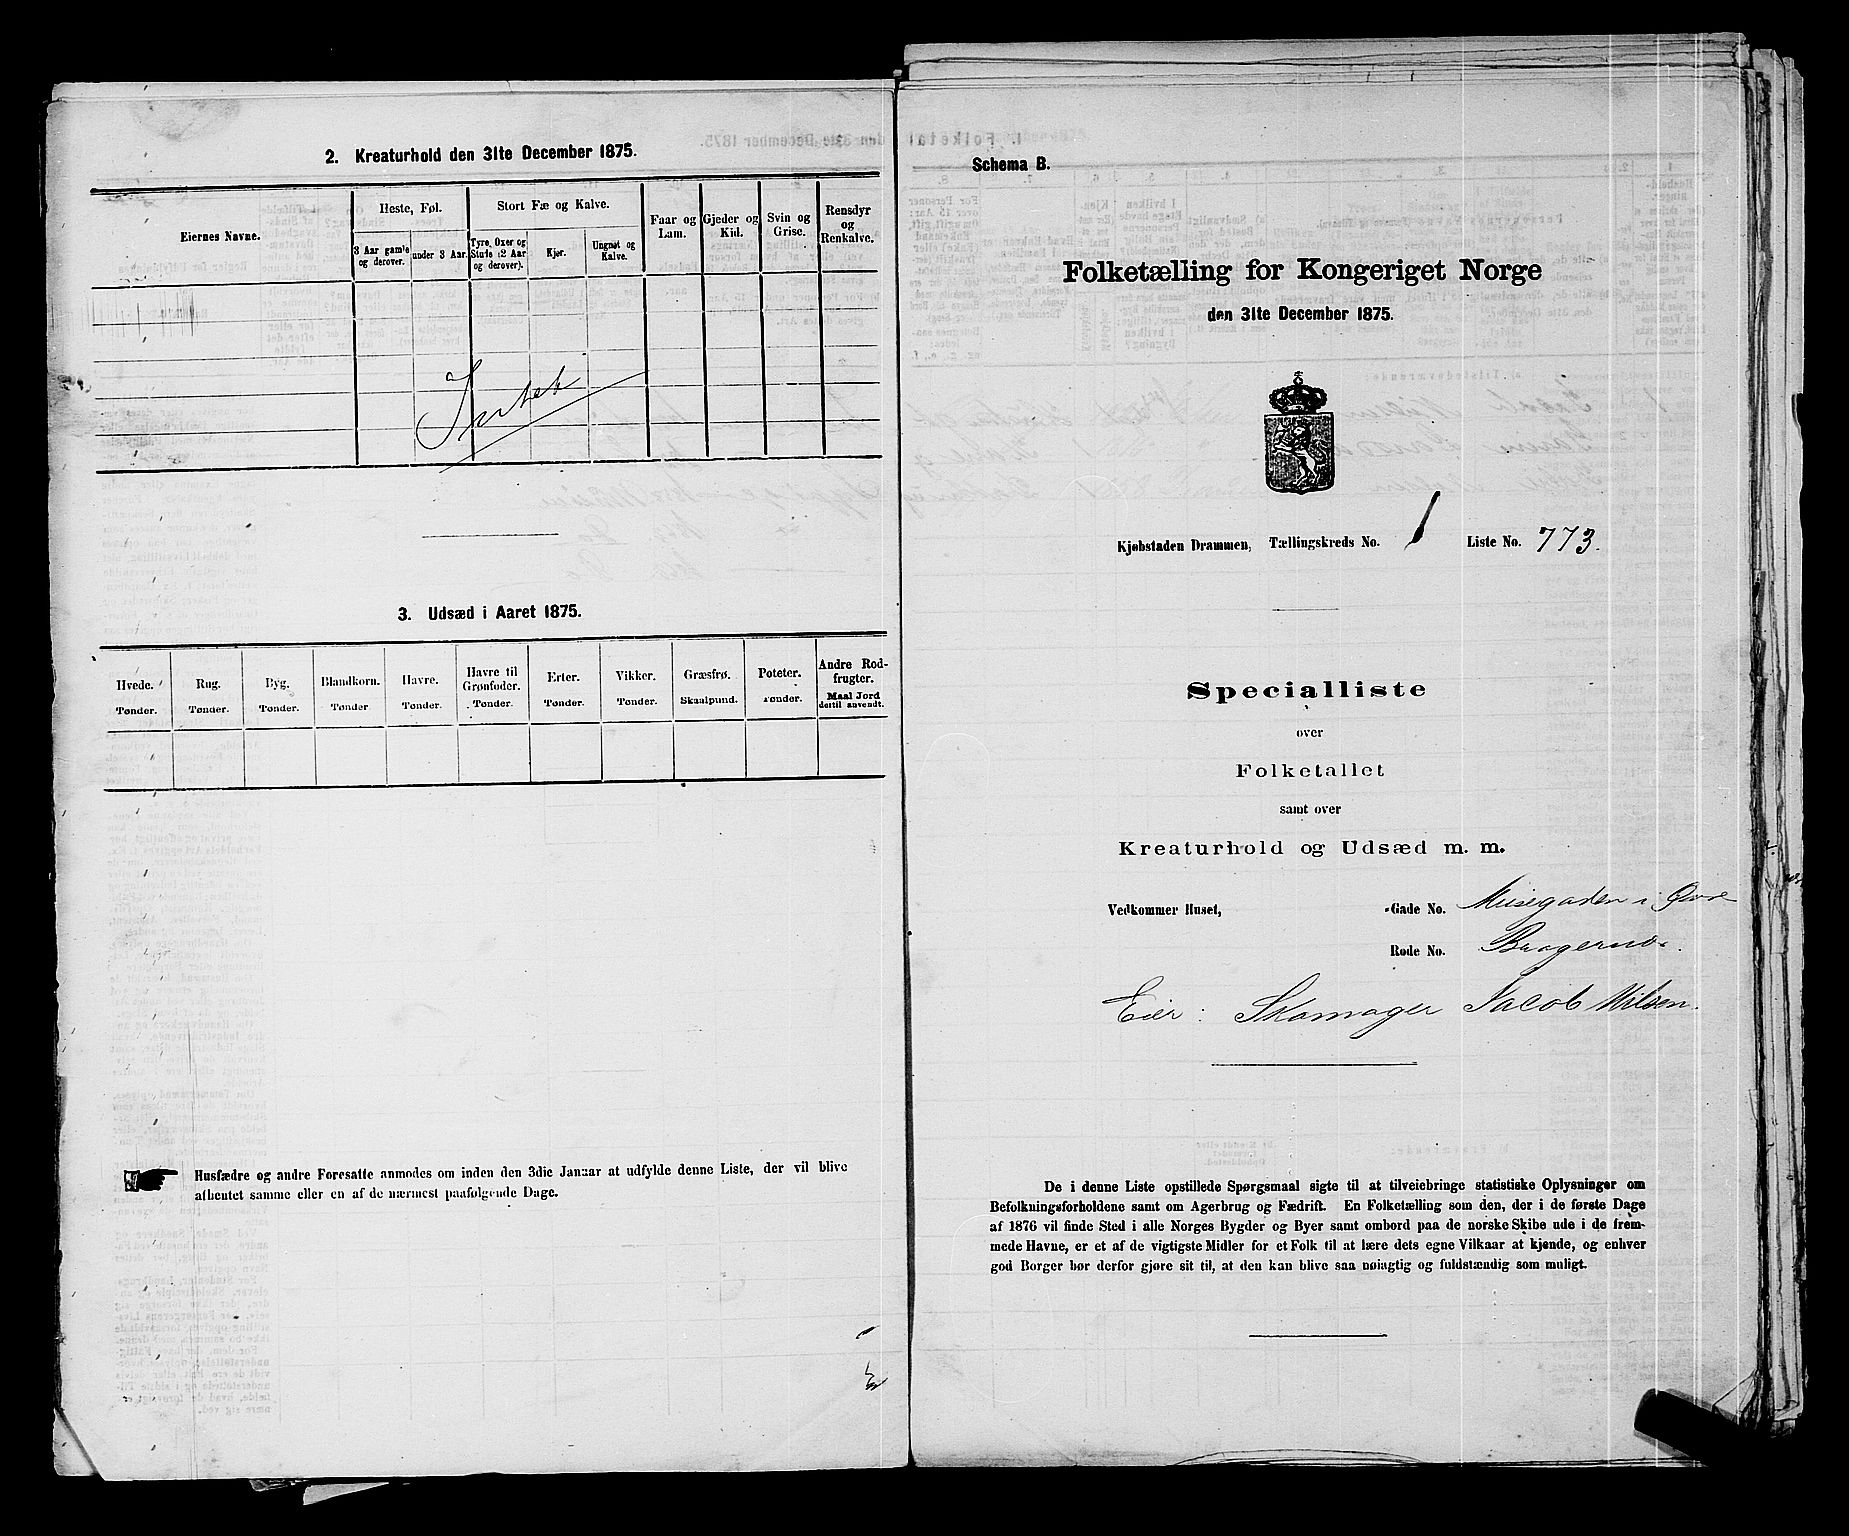 2. Kreaturhold den 31te December 1875.
Eiernes Navne.
Heste, Føl.
3 Aar gamle og derover.
under 3 Aar.
Stort Fæ og Kalve.
Tyre, Oxer og Stude (2 Aar og derover).
Kjør.
Ungnøt og Kalve.
Faar og Lam.
Gjeder og Kid.
Svin og Grise.
Rensdyr og Renkalve.
Intet
3. Udsæd i Aaret 1875.
Hvede. Tønder.
Rug. Tønder.
Byg. Tønder.
Blandkorn. Tønder
Havre. Tønder.
Havre til Grønfoder. Tønder.
Erter. Tønder.
Vikker. Tønder.
Græsfrø. Skaalpund.
Poteter. Tønder.
Andre Rodfrugter. Maal Jord dertil anvendt.
Husfædre og andre Foresatte anmodes om inden den 3die Januar at udfylde denne Liste, der vil blive
afhentet samme eller en af de nærmest paafølgende Dage.
Schema B.
Folketælling for Kongeriget Norge
den 31te December 1875.
Kjøbstaden Drammen, Tællingskreds No. 1 Liste No. 773.
Specialliste
over
Folketallet
samt over
Kreaturhold og Udsæd m. m.
Vedkommer Huset, -Gade No. Musegaden i Øvre
Rode No. Bragernes.
Eier: Skomager Jacob Nilsen.
De i denne Liste opstillede Spørgsmaal sigte til at tilveiebringe statistiske Oplysninger om
Befolkningsforholdene samt om Agerbrug og Fædrift. En Folketælling som den, der i de første Dage
af 1876 vil finde Sted i alle Norges Bygder og Byer samt ombord paa de norske Skibe ude i de frem-
mede Havne, er et af de vigtigste Midler for et Folk til at lære dets egne Vilkaar at kjende, og enhver
god Borger bør derfor gjøre sit til, at den kan blive saa nøiagtig og fuldstændig som muligt.